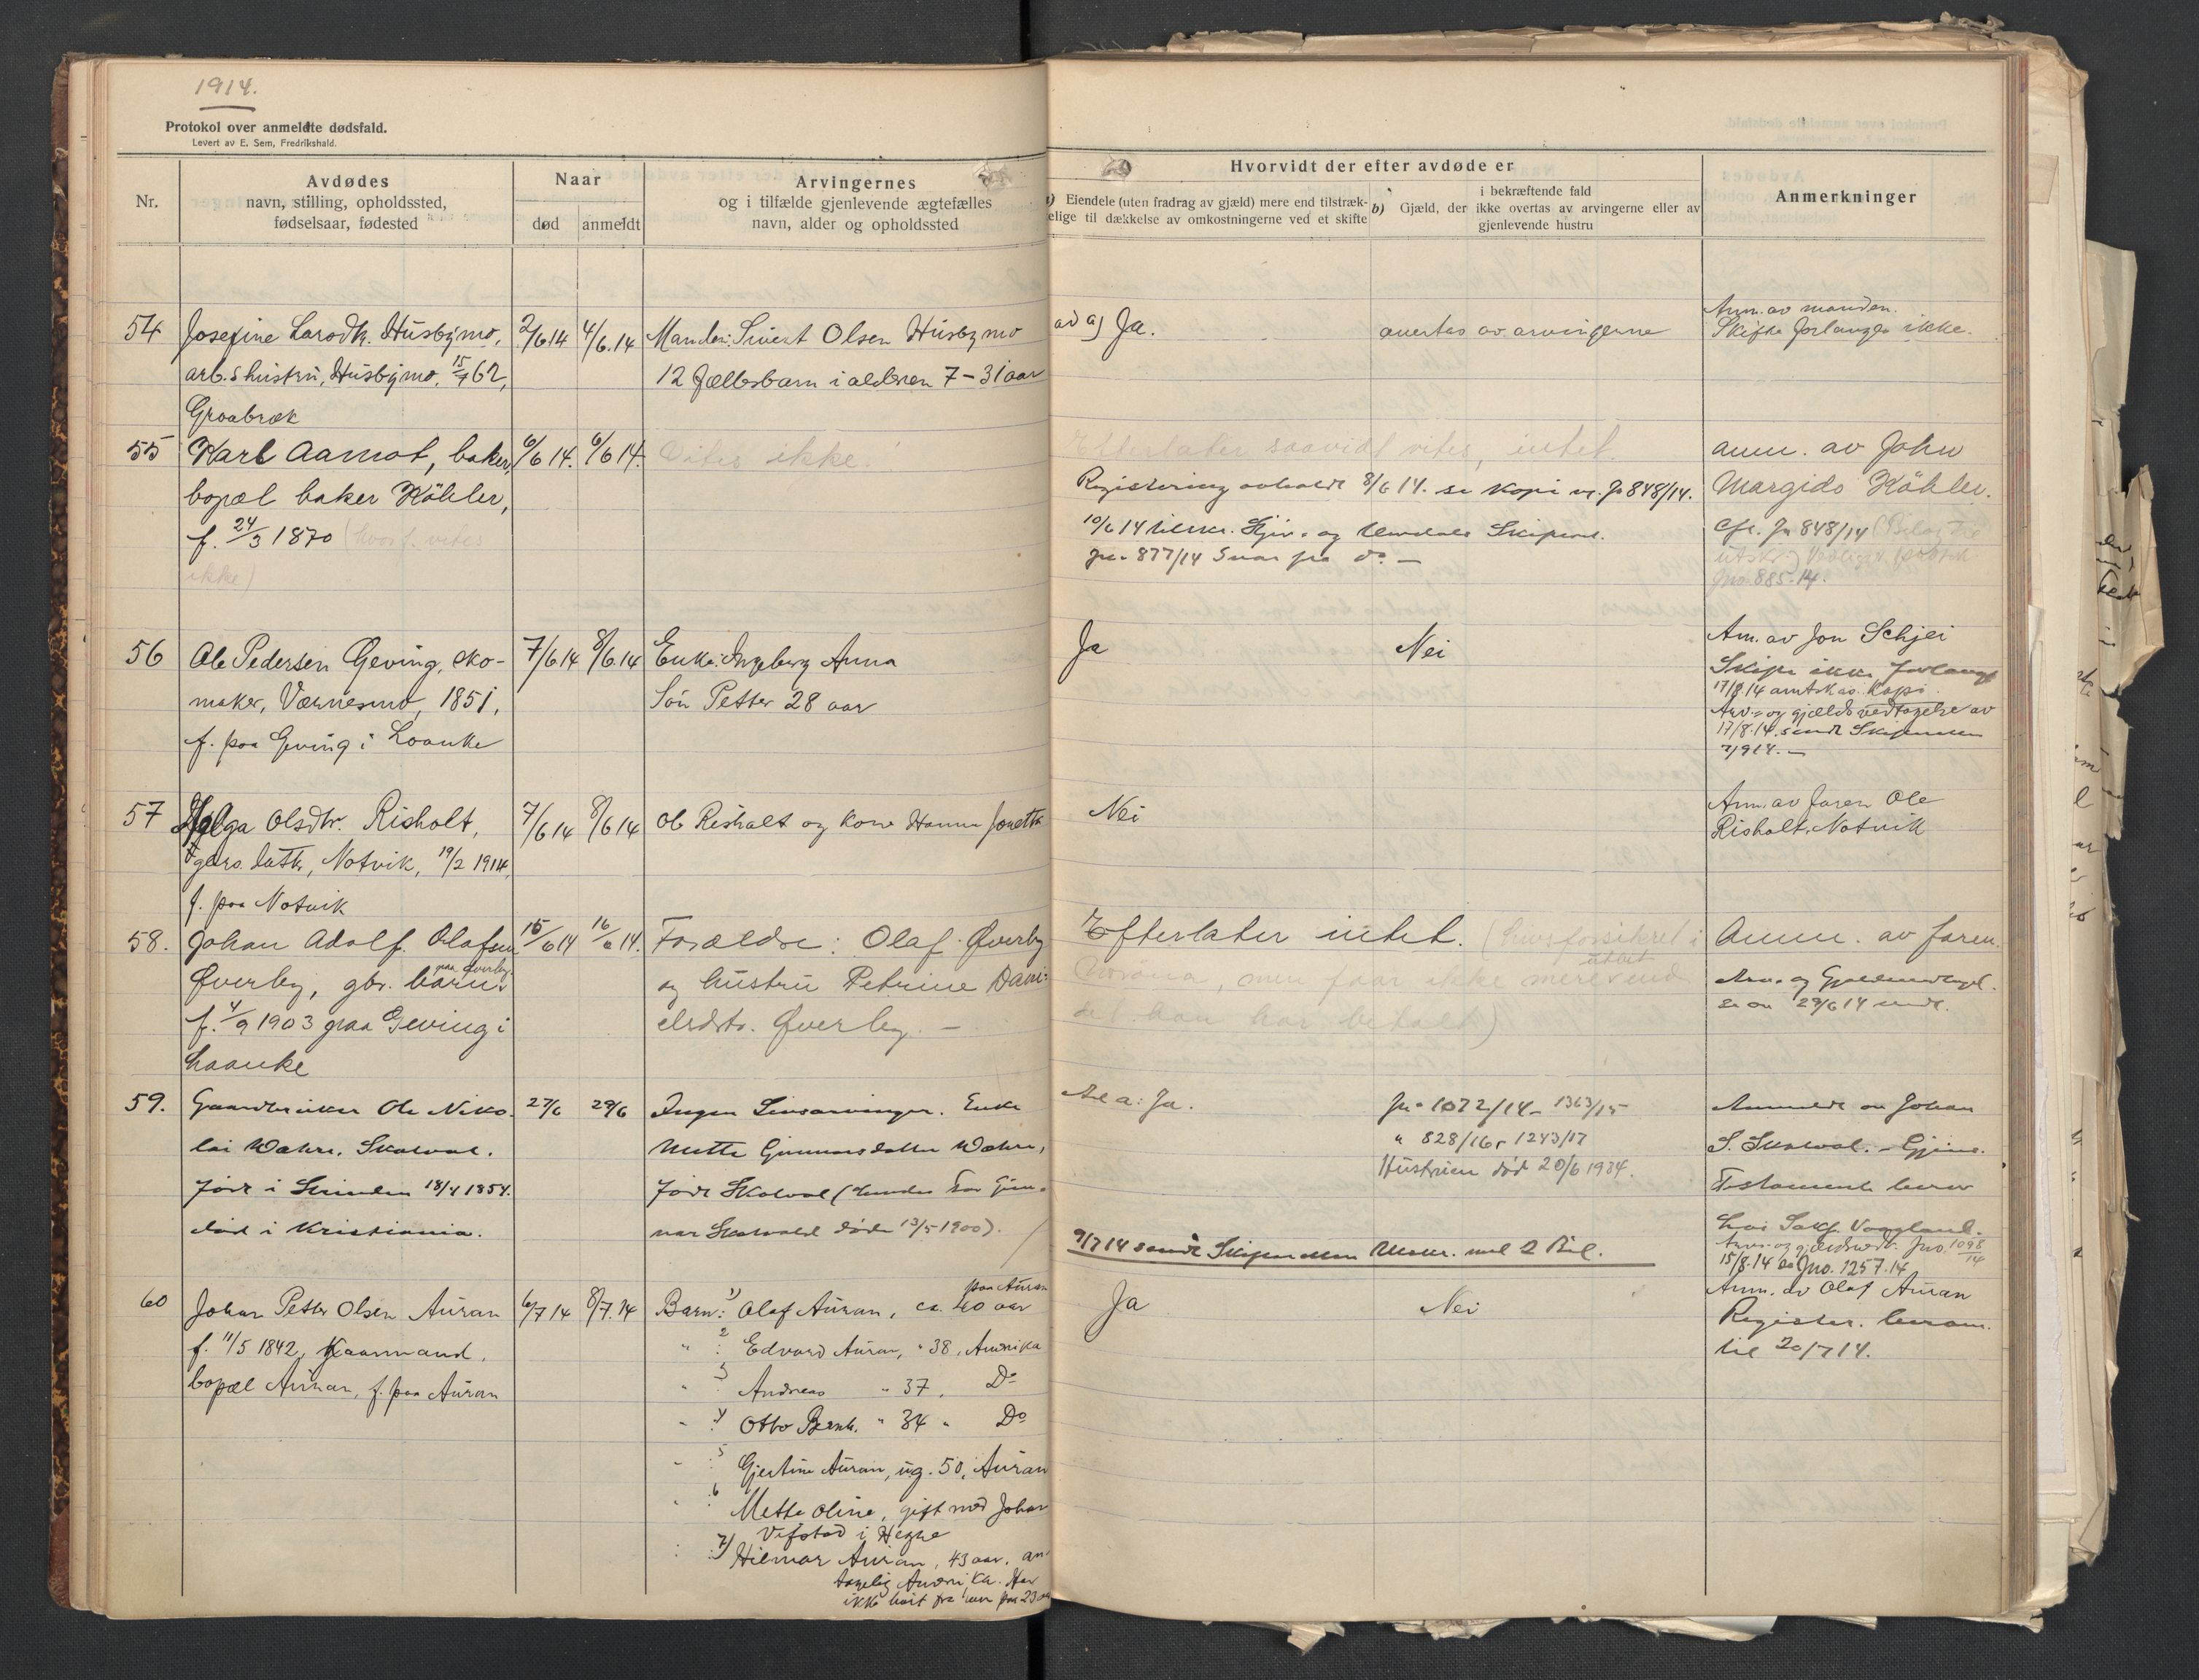 1914.
Protokol over anmeldte dødsfald.
Levert av E. Sem, Fredrikshald.
Nr.
Avdødes
navn, stilling, opholdssted,
fødselsaar, fødested
Naar
død
anmeldt
Arvingernes
og i tilfælde gjenlevende ægtefælles
navn, alder og opholdssted
Hvorvidt der efter avdøde er
a) Eiendele (uten fradrag av gjæld) mere end tilstræk-
kelige til dækkelse av omkostningerne ved et skifte
i bekræftende fald
b) Gjæld, der ikke overtas av arvingerne eller av
gjenlevende hustru
Anmerkninger
54
Josefine Larsdtr. Husbymo,
arb.s hustru, Husbymo, 15/7 62,
Graabræk
2/6 14
4/6.14
Manden: Sivert Olsen Husbymo
12 fællesbarn i alderen 7-31 aar
ad a) Ja.
overtas av arvingerne
Anm. av manden.
Skifte forlanges ikke.
55
Karl Aamot, baker,
bopæl baker Köhler,
f. 24/3 1870 (hvor f. vites
ikke)
6/6 14.
6/6 14.
Vites ikke.
Efterlater saavidt vites, intet.
Registrering avholdt 8/6 14. se Kopi nr. Jr 848/14.
10/6 14 tilskr.
877/14 Svar fra do. —
anm. av John
Margido Köhler.
Cfr. Jr 848/14
Jno. 885-14.
56
Ole Pedersen Geving, sko-
maker, Værnesmo, 1851,
f. paa Geving i Laanke
7/6 14
8/6.14
Enke: Ingeborg Anna
Søn Petter 28 aar
Ja
Nei
Am. av Jon Schjei
Skifte ikke forlangt
17/8.14 Kopi.
Arv.- og gjældsvedtagelse av
17/8.14. sendt Skifteretten
57
Helga Olsdtr. Risholt,
datter, Notvik, 19/2 1914,
f. paa Notvik
7/6 14
8/6 14
Ole Risholt og kone Hanna Jonette
Nei
Anm. av faren Ole
Risholt, Notvik
58.
Johan Adolf Olafsen
Øverby, gbr. barn, paa Øverby.
f. 4/9 1903 paa Geving i
Laanke
15/6 14
16/6 14.
Forældre: Olaf Øverby
og hustru Petrine Dani-
elsdtr. Øverby. —
Efterlater intet. (Livsforsikret i
Norøna, men faar ikke mere utbet. end
det han har betalt)
Anm. av faren.
Arv. og
29/6 14
59.
Gaardbruker Ole Niko-
lai Wahre, Skatval.
født i 18/4 1854.
død i Kristiania.
27/6
29/6
Ingen Livsarvinger. Enke
Mette Gunnarsdatter Wahre,
født Skatval (hendes Far Gun-
nar Skatvald døde 13/5 1900).
Ad a: Ja.
Jr. 1072/14 - 1363/15
" 828/16, 1243/17
Hustruen død 20/6 1934.
9/7 14 sendt Skifteretten Utskr. med 2 Bil.
Anmeldt av Johan
S. Skatval.
Testamente beror
hos Sakf. Vogglund.
Arvs- og gjældsvedt. Jno. 1098/14
15/8.14 Jno. 1257.14
60
Johan Petter Olsen Auran
f. 11/5 1842, Kaarmand,
bopæl Auran, f. paa Auran
6/7 14
8/7.14
Barn: 1) Olaf Auran, ca. 40 aar paa Auran
" 2 Edvard Auran, " 38, Amerika
" 3 Andreas " 37, Do
" 4 Otto Bernh. " 34 " Do
" 5 Gjertine Auran, ug. 50, Auran
" 6 Mette Oline, gift med Johan
Vifstad i Hegre
7) Hilmar Auran, 43 aar, an-
tagelig Amerika. Har
ikke hørt fra ham paa 23 aar
Ja
Nei
Anm. av Olaf Auran
Registr. beram.
til 20/7 14.